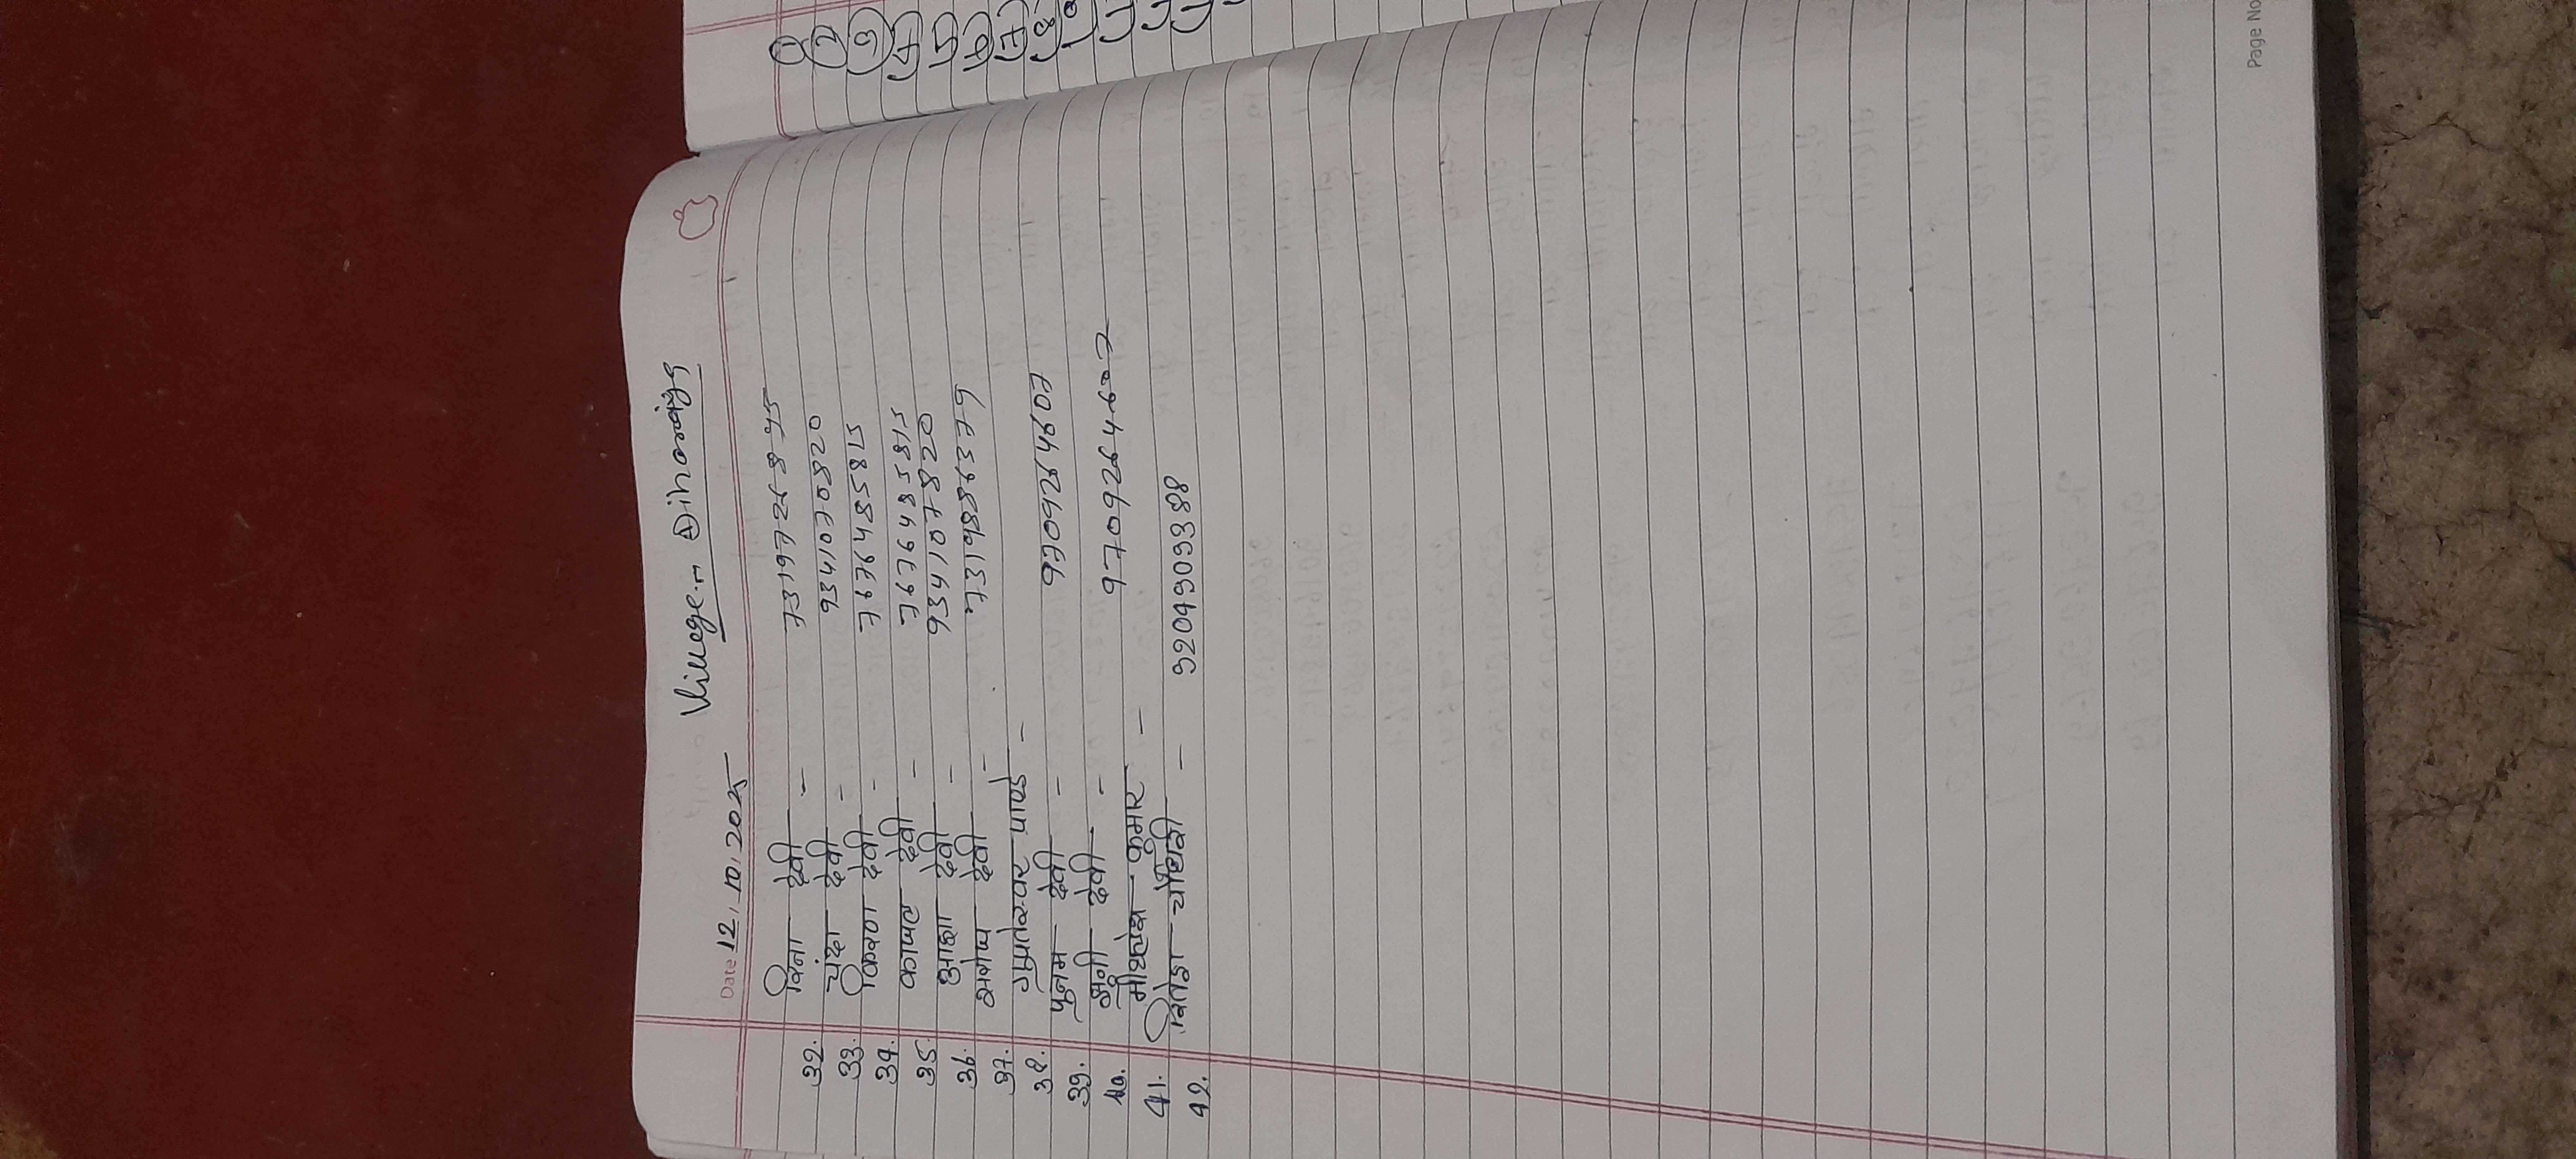 Date 12, 10, 2025 Village:-
32. विना देवी - 7319726845
33. चंदा देवी - 9341070820
34. किरण देवी - 7676485815
35. काजल देवी - 7676485815
36. आशा देवी - 9341078820
37. सरोज देवी - 7319886379
38. गुप्तेश्वर पाण्डे -
39. पुनम देवी - 9709264607
40. मुन्नी देवी - 9709264607
41. मीथलेश कुमार -
42. चौधरी - 9204909388
1
2
3
4
5
6
7
8
Page No